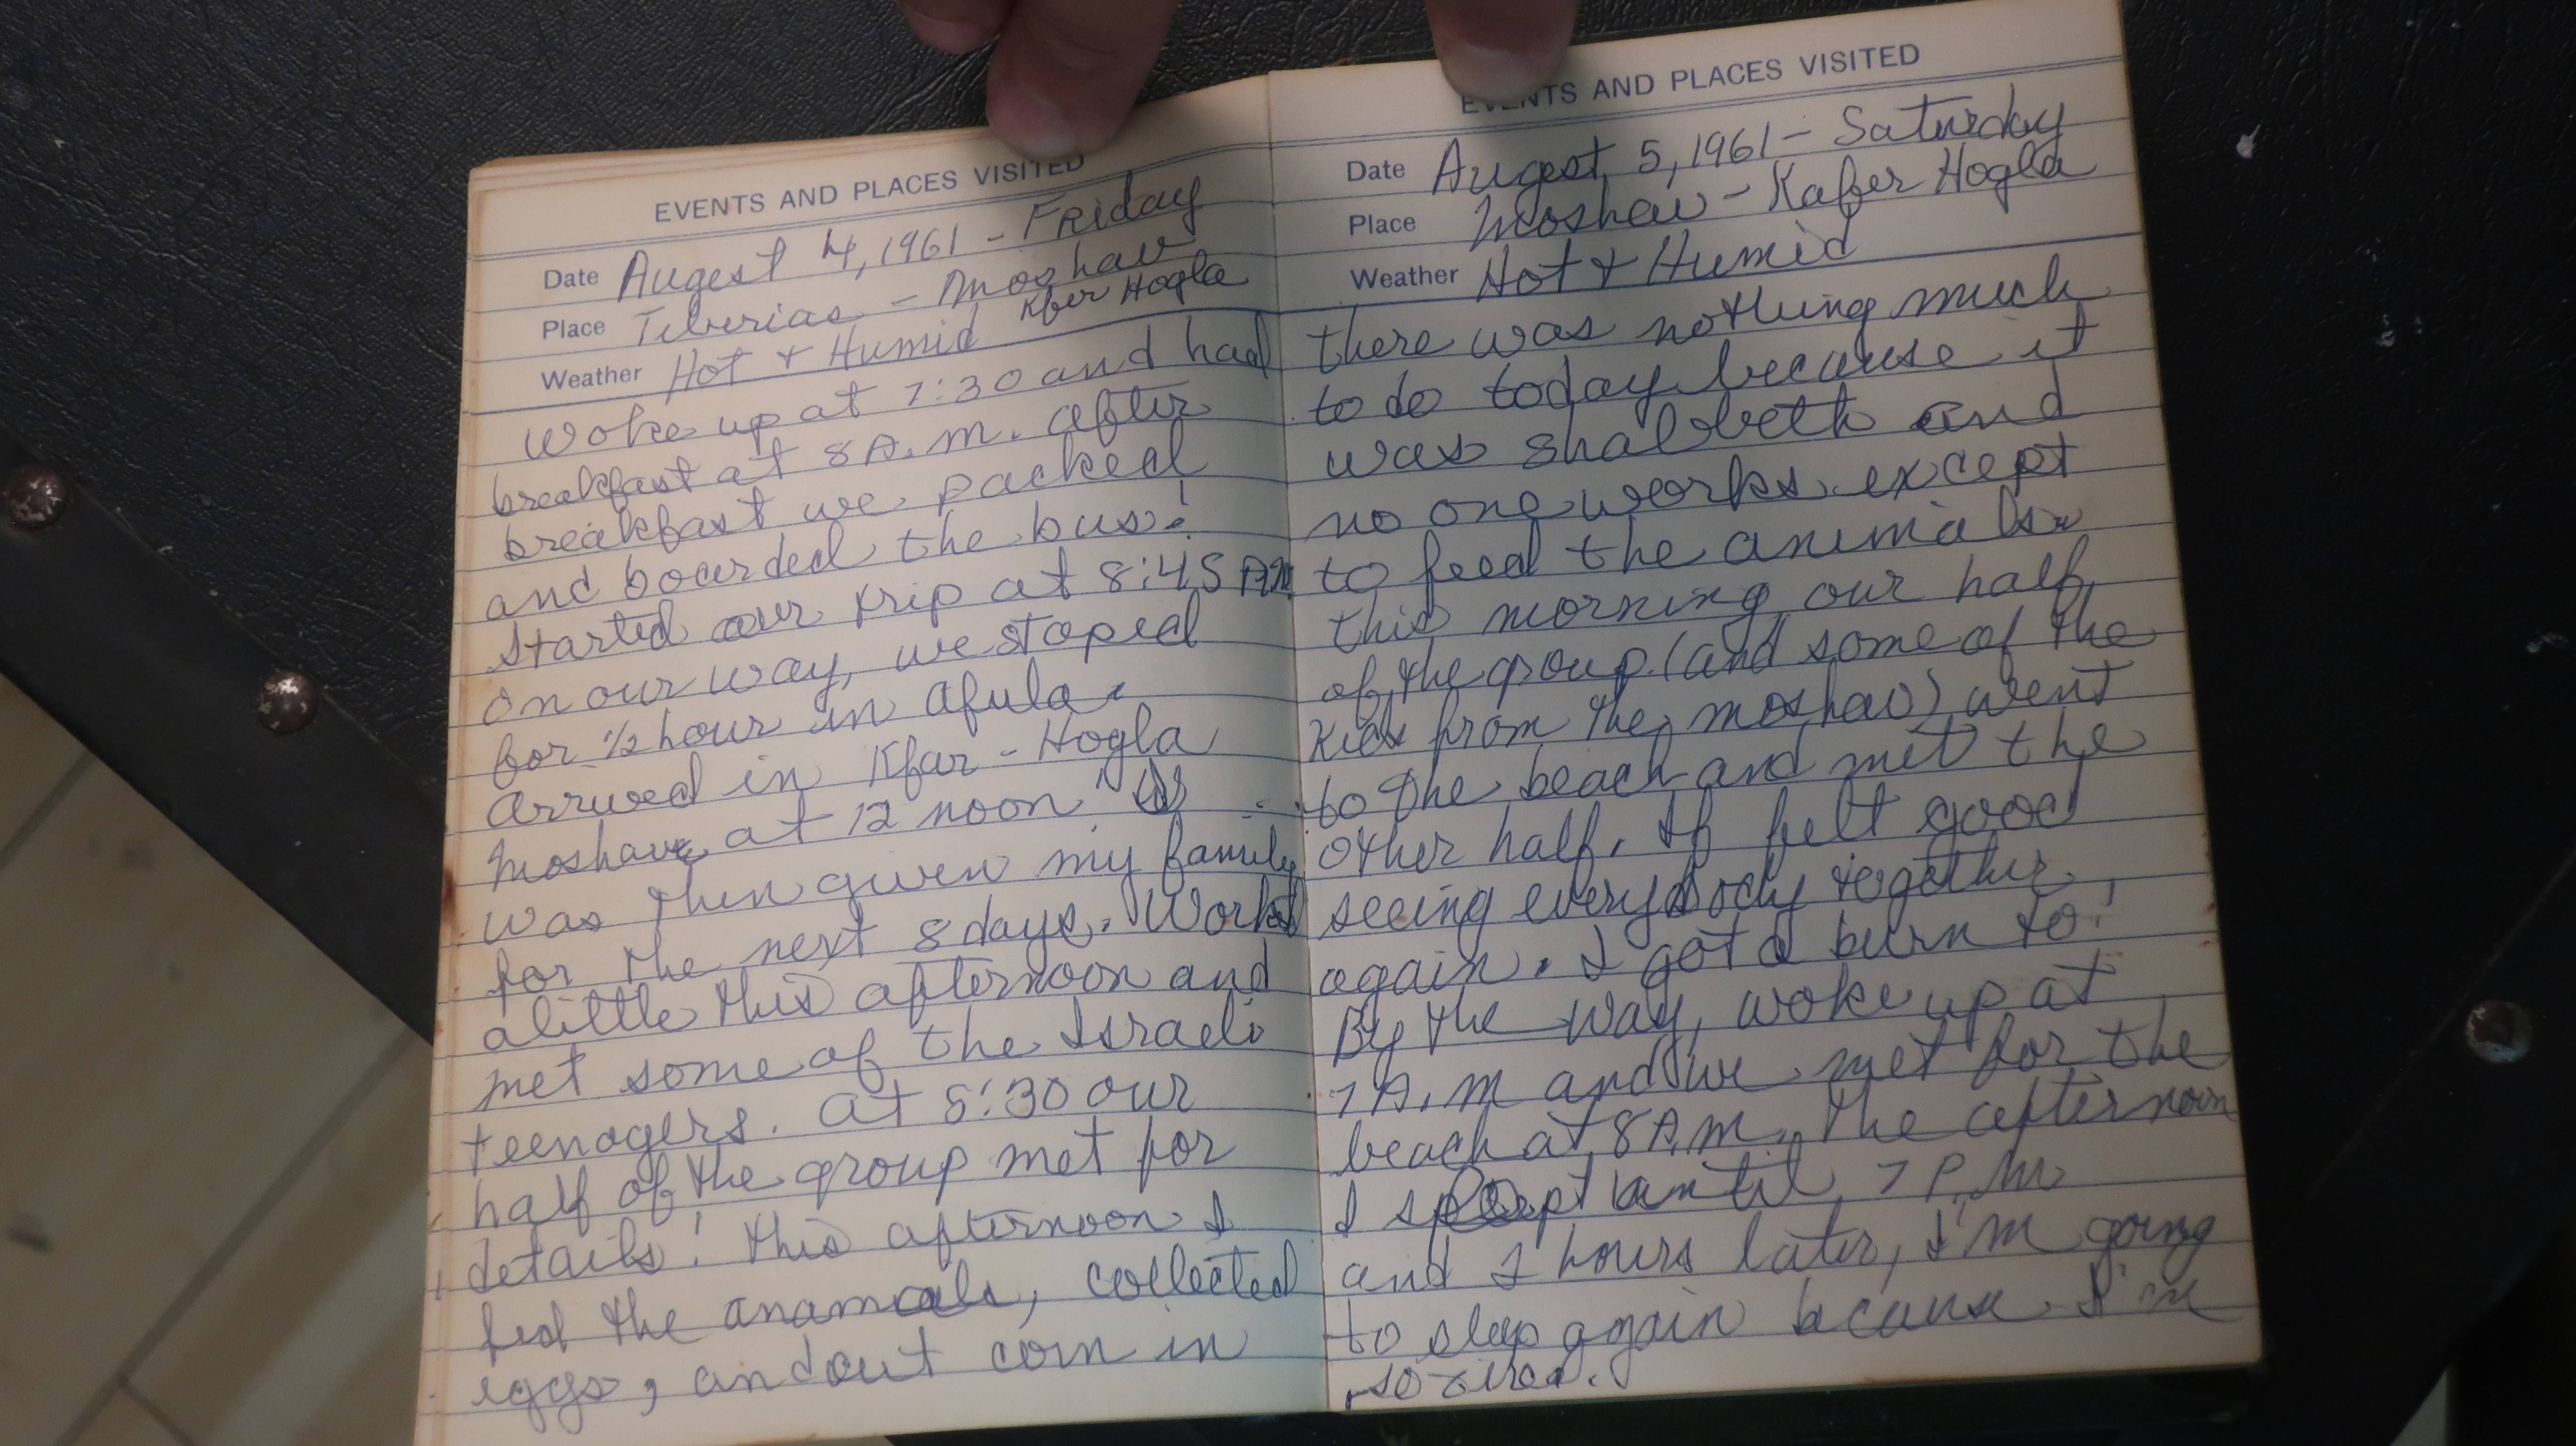 EVENTS AND PLACES VISITED
Date Augest 4, 1961 - Friday
Place Tiberias - Moshav
Kfer Hogla
Weather Hot + Humid
Woke up at 7:30 and had
breakfast at 8 A.M. After
breakfast we packed
and boarded the bus!
Started our trip at 8:45 AM
on our way, we stoped
for 1/2 hour in Afula.
Arrived in Kfar - Hogla
Moshav at 12 noon. I
was then given my family
for the next 8 days. Worked
a little this afternoon and
met some of the Israeli
teenagers. At 8:30 our
half of the group met for
details! This afternoon I
fed the anamals, collected
eggs, and out corn in
EVENTS AND PLACES VISITED
Date Augest, 5, 1961 - Saturday
Place Moshav - Kafer Hogla
Weather Hot + Humid
there was nothing much
to do today because it
was shabbeth and
no one works except
to feed the animals.
this morning our half
of the group (and some of the
kids from the moshav) went
to the beach and met the
other half. It felt good
seeing everybody together
again. I got a burn to!
By the way, woke up at
7 A.M and we met for the
beach at 8 A.M. The afternoon
I slept until 7 P.M
and 2 hours later, I'm going
to sleep again because I'm
so tired.